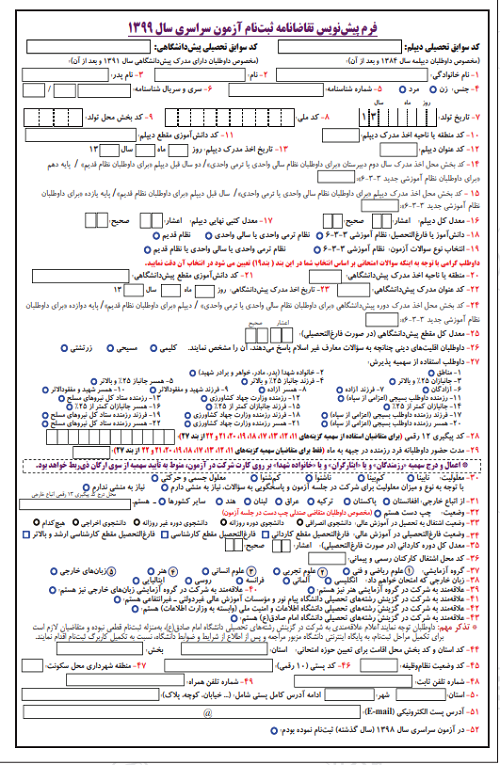 فرم پیش‌نویس تقاضانامه ثبت‌نام آزمون سراسری سال ۱۳۹۹
کد سوابق تحصیلی دیپلم: کد سوابق تحصیلی پیش‌دانشگاهی:
(مخصوص داوطلبان دیپلمه سال ۱۳۸۴ و بعد از آن) (مخصوص داوطلبان دارای مدرک پیش‌دانشگاهی سال ۱۳۹۱ و بعد از آن)
۱- نام خانوادگی: ۲- نام: ۳- نام پدر:
۴- جنس: زن مرد ۵- شماره شناسنامه: ۶- سری و سریال شناسنامه: / /
روز ماه سال
۷- تاریخ تولد: ۱۳ ۸- کد ملی: ۹- کد بخش محل تولد:
۱۰- کد منطقه یا ناحیه اخذ مدرک دیپلم: ۱۱- کد دانش‌آموزی مقطع دیپلم:
۱۲- کد عنوان دیپلم: ۱۳- تاریخ اخذ مدرک دیپلم: روز ماه سال ۱۳
۱۴- کد بخش محل اخذ مدرک سال دوم دبیرستان «برای داوطلبان نظام سالی واحدی یا ترمی واحدی»/ دو سال قبل دیپلم «برای داوطلبان نظام قدیم» / پایه دهم
«برای داوطلبان نظام آموزشی جدید ۳-۳-۶»:
۱۵- کد بخش محل اخذ مدرک دیپلم «برای داوطلبان نظام سالی واحدی یا ترمی واحدی»/ سال قبل دیپلم «برای داوطلبان نظام قدیم»/ پایه یازده «برای داوطلبان
نظام آموزشی جدید ۳-۳-۶»:
۱۶- معدل کل دیپلم: اعشار: صحیح: ۱۷- معدل کتبی نهایی دیپلم: اعشار: صحیح:
۱۸- دانش‌آموز یا فارغ‌التحصیل: نظام آموزشی ۳-۳-۶ نظام ترمی واحدی یا سالی واحدی نظام قدیم
۱۹- انتخاب نوع سوالات آزمون: نظام آموزشی ۳-۳-۶ نظام ترمی واحدی یا سالی واحدی یا نظام قدیم
داوطلب گرامی با توجه به اینکه سوالات امتحانی بر اساس انتخاب شما در این بند ( بند۱۹) تعیین می شود در انتخاب آن دقت نمایید.
۲۰- منطقه یا ناحیه اخذ مدرک پیش‌دانشگاهی: ۲۱- کد دانش‌آموزی مقطع پیش‌دانشگاهی:
۲۲- کد عنوان مدرک پیش‌دانشگاهی: ۲۳- تاریخ اخذ مدرک پیش‌دانشگاهی: روز ماه سال ۱۳
۲۴- کد بخش محل اخذ مدرک دوره پیش‌دانشگاهی «برای داوطلبان نظام سالی واحدی یا ترمی واحدی» / دیپلم «برای داوطلبان نظام قدیم»/ پایه دوازده «برای داوطلبان
نظام آموزشی جدید ۳-۳-۶»:
اعشار صحیح
۲۵- معدل کل مقطع پیش‌دانشگاهی (در صورت فارغ‌التحصیلی):
۲۶- داوطلبان اقلیت‌های دینی چنانچه به سؤالات معارف غیر اسلام پاسخ می‌دهند، آن را مشخص نمایند. کلیمی مسیحی زرتشتی
۲۷- داوطلب استفاده از سهمیه پذیرش:
۱- مناطق ۲- خانواده شهدا (پدر، مادر، خواهر و برادر شهید)
۳- جانبازان ۲۵٪ و بالاتر ۴- فرزند جانباز ۲۵٪ و بالاتر ۵- همسر جانباز ۲۵٪ و بالاتر
۶- آزادگان ۷- فرزند آزاده ۸- همسر آزاده ۹- فرزند شهید و مفقودالاثر ۱۰- همسر شهید و مفقودالاثر
۱۱- رزمنده داوطلب بسیجی (اعزامی از سپاه) ۱۲- رزمنده وزارت جهاد کشاورزی ۱۳- رزمنده ستاد کل نیروهای مسلح
۱۴- جانبازان کمتر از ۲۵٪ ۱۵- فرزند جانبازان کمتر از ۲۵٪ ۱۶- همسر جانبازان کمتر از ۲۵٪
۱۷- فرزند رزمنده داوطلب بسیجی (اعزامی از سپاه) ۱۸- فرزند رزمنده وزارت جهاد کشاورزی ۱۹- فرزند رزمنده ستاد کل نیروهای مسلح
۲۰- همسر رزمنده داوطلب بسیجی (اعزامی از سپاه) ۲۱- همسر رزمنده وزارت جهاد کشاورزی ۲۲- همسر رزمنده ستاد کل نیروهای مسلح
۲۸- کد پیگیری ۱۲ رقمی (برای متقاضیان استفاده از سهمیه گزینه‌های ۱۱، ۱۲، ۱۳، ۱۷، ۱۸، ۱۹، ۲۰، ۲۱ و ۲۲ از بند ۲۷):
۲۹- مدت حضور داوطلبانه فرد رزمنده در جبهه به ماه (فقط برای متقاضیان سهمیه گزینه‌های ۱۱، ۱۲، ۱۳، ۱۷، ۱۸، ۱۹، ۲۰، ۲۱ و ۲۲ از بند ۲۷):
اعمال و درج سهمیه «رزمندگان» و یا «ایثارگران» و یا «خانواده شهدا» بر روی کارت شرکت در آزمون، منوط به تأیید سهمیه از سوی ارگان ذی‌ربط خواهد بود.
۳۰- معلولیت: نابینا کم‌بینا ناشنوا کم‌شنوا معلول جسمی و حرکتی
با توجه به نوع و میزان معلولیت برای شرکت در جلسه آزمون و پاسخگویی به سؤالات، نیاز به منشی دارم نیاز به منشی ندارم
محل درج کد پیگیری ۱۳ رقمی اتباع خارجی
۳۱- از اتباع خارجی: افغانستان پاکستان ترکیه عراق لبنان هند سایر کشورها هستم.
۳۲- وضعیت: چپ دست هستم (مخصوص داوطلبان متقاضی صندلی چپ دست در جلسه آزمون)
۳۳- وضعیت اشتغال به تحصیل در آموزش عالی: دانشجوی انصرافی دانشجوی دوره روزانه دانشجوی دوره غیر روزانه دانشجوی اخراجی هیچ‌کدام
۳۴- وضعیت فارغ‌التحصیلی در آموزش عالی: فارغ‌التحصیل مقطع کاردانی فارغ‌التحصیل مقطع کارشناسی فارغ‌التحصیل مقطع کارشناسی ارشد و بالاتر
۳۵- معدل کل دوره کاردانی (در صورت فارغ‌التحصیلی): اعشار: صحیح:
۳۶- کد محل اشتغال کارکنان رسمی و پیمانی:
۳۷- گروه آزمایشی: ۱ علوم ریاضی و فنی ۲ علوم تجربی ۳ علوم انسانی ۴ هنر ۵ زبان‌های خارجی
۳۸- زبان خارجی که امتحان خواهم داد: انگلیسی آلمانی فرانسه روسی ایتالیایی
۳۹- علاقمند به شرکت در گروه آزمایشی هنر نیز هستم: ۴۰- علاقه‌مند به شرکت در گروه آزمایشی زبان‌های خارجی نیز هستم:
۴۱- علاقه‌مند به شرکت در گزینش رشته‌های تحصیلی دانشگاه پیام نور و مؤسسات آموزش عالی غیردولتی ـ غیرانتفاعی هستم:
۴۲- علاقمند به شرکت در گزینش رشته‌های تحصیلی دانشگاه اطلاعات و امنیت ملی (وابسته به وزارت اطلاعات) هستم:
۴۳- علاقمند به شرکت در گزینش رشته‌های تحصیلی دانشگاه امام صادق(ع) هستم:
تذکر مهم: داوطلبان توجه نمایند اعلام علاقه‌مندی به شرکت در گزینش رشته‌های تحصیلی دانشگاه امام صادق(ع)، به‌منزله ثبت‌نام قطعی نبوده و متقاضیان لازم است
برای تکمیل مراحل ثبت‌نام، به پایگاه اینترنتی دانشگاه مزبور مراجعه و پس از اطلاع از شرایط و ضوابط دانشگاه، نسبت به تکمیل کاربرگ ثبت‌نام اقدام نمایند.
۴۴- کد استان و کد بخش محل اقامت برای تعیین حوزه امتحانی: استان: بخش:
۴۵- کد وضعیت نظام‌وظیفه: ۴۶- کد پستی (۱۰ رقمی): ۴۷- منطقه شهرداری محل سکونت:
۴۸- شماره تلفن ثابت: ۴۹- شماره تلفن همراه:
۵۰- استان: شهر: ادامه آدرس کامل پستی شامل: (... خیابان، کوچه، پلاک):
۵۱- آدرس پست الکترونیکی (E-mail): @
۵۲- در آزمون سراسری سال ۱۳۹۸ (سال گذشته) ثبت‌نام نموده بودم: